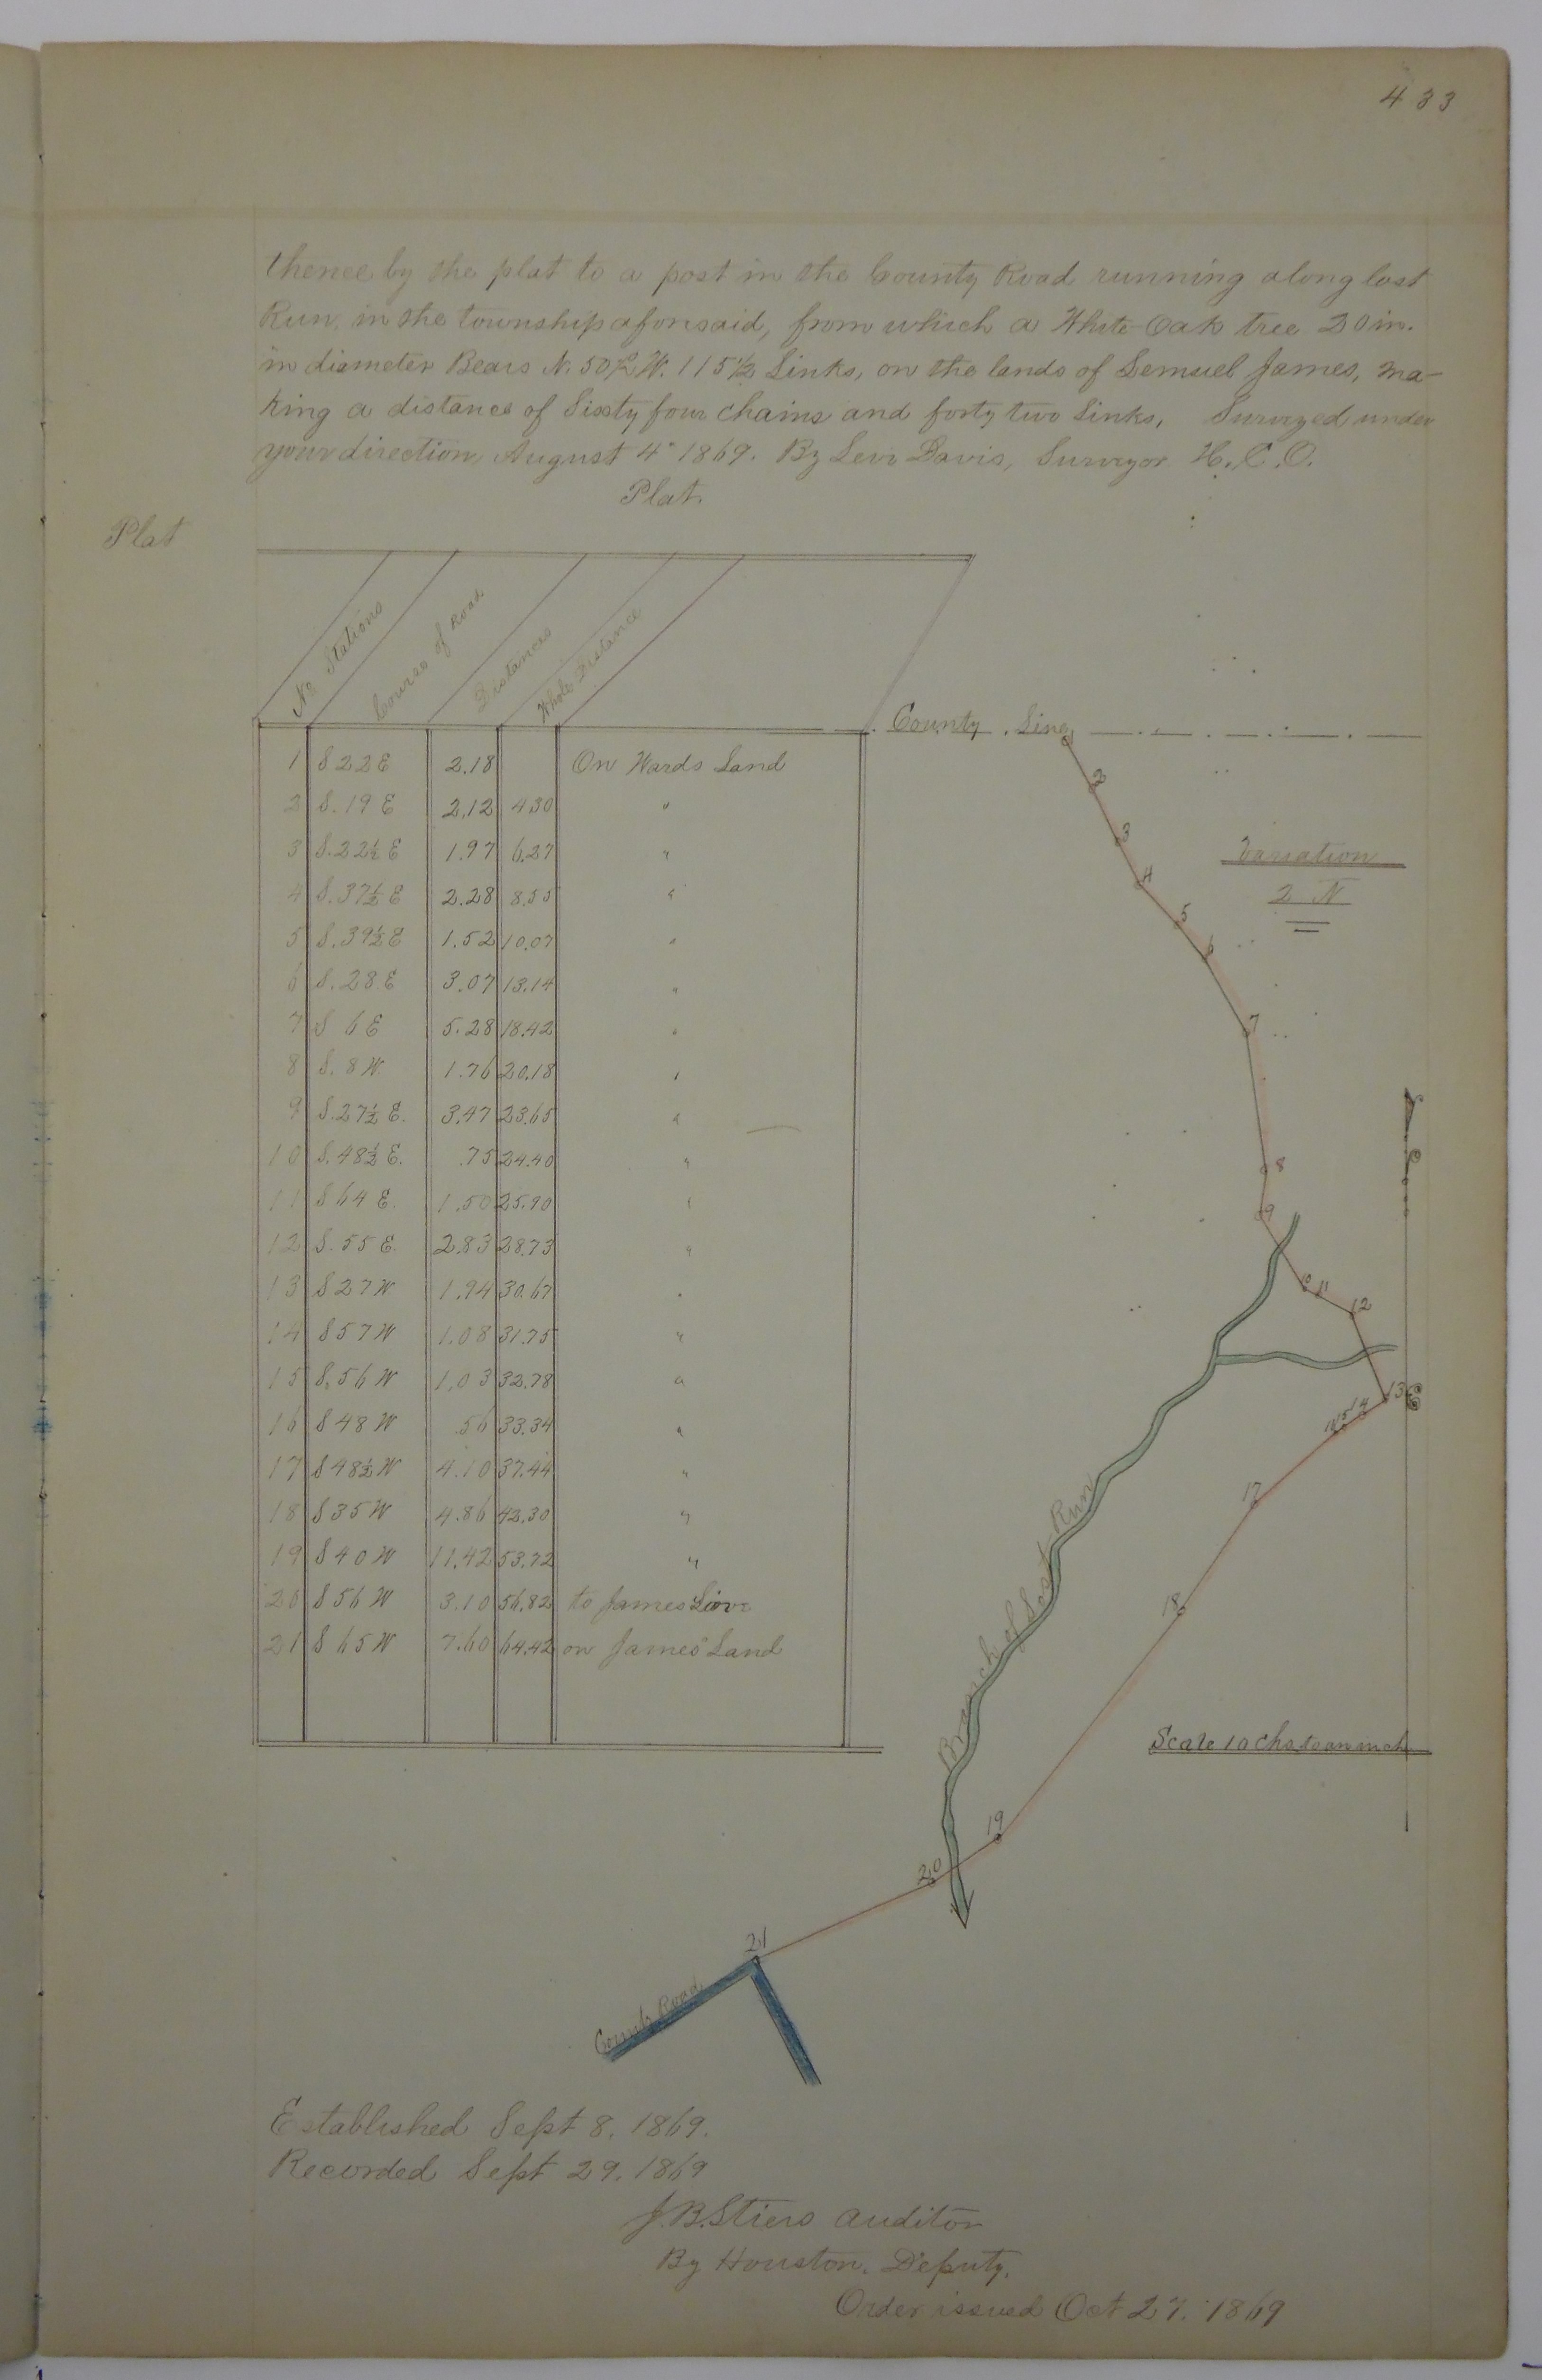 433
thence by the plat to a post in the County Road running along lost
Run, in the township aforesaid, from which a White Oak tree 20 in.
in diameter Bears N. 50½ W. 115½ Links, on the lands of Lemuel James, ma-
king a distance of Sixty four chains and forty two links, Surveyed under
your direction August 4" 1869. By Levi Davis, Surveyor H. C. O.
Plat.
Plat
No. Stations Courses of Road Distances Whole Distance
County Line
1 S 22 E 2.18 On Wards Land
2 S. 19 E 2.12 4.30 "
3 S. 22½ E 1.97 6.27 "
4 S. 37½ E 2.28 8.55 "
5 S. 39½ E 1.52 10.07 "
6 S. 28 E 3.07 13.14 "
7 S 6 E 5.28 18.42 "
8 S. 8 W. 1.76 20.18 "
9 S. 27½ E. 3.47 23.65 "
10 S. 48½ E. .75 24.40 "
11 S 64 E. 1.50 25.90 "
12 S. 55 E. 2.83 28.73 "
13 S 27 W 1.94 30.67 "
14 S 57 W 1.08 31.75 "
15 S. 56 W 1.03 32.78 "
16 S 48 W .56 33.34 "
17 S 48½ W 4.10 37.44 "
18 S 35 W 4.86 42.30 "
19 S 40 W 11.42 53.72 "
20 S 56 W 3.10 56.82 to James Line
21 S 65 W 7.60 64.42 on James' Land
2
3
4
Variation
2 N
5
6
7
8
9
10 11
12
13
14
15
16
17
18
Branch of Lost Run
Scale 10 chs to an inch
19
20
21
County Road
Established Sept 8. 1869.
Recorded Sept 29. 1869
J. B. Stiers Auditor
By Houston. Deputy.
Order issued Oct 27. 1869